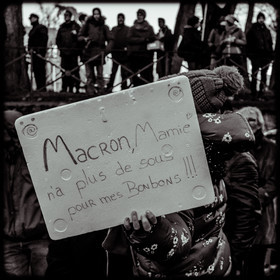 Macron, Mamie
n'a plus de sous
pour mes Bonbons !!!